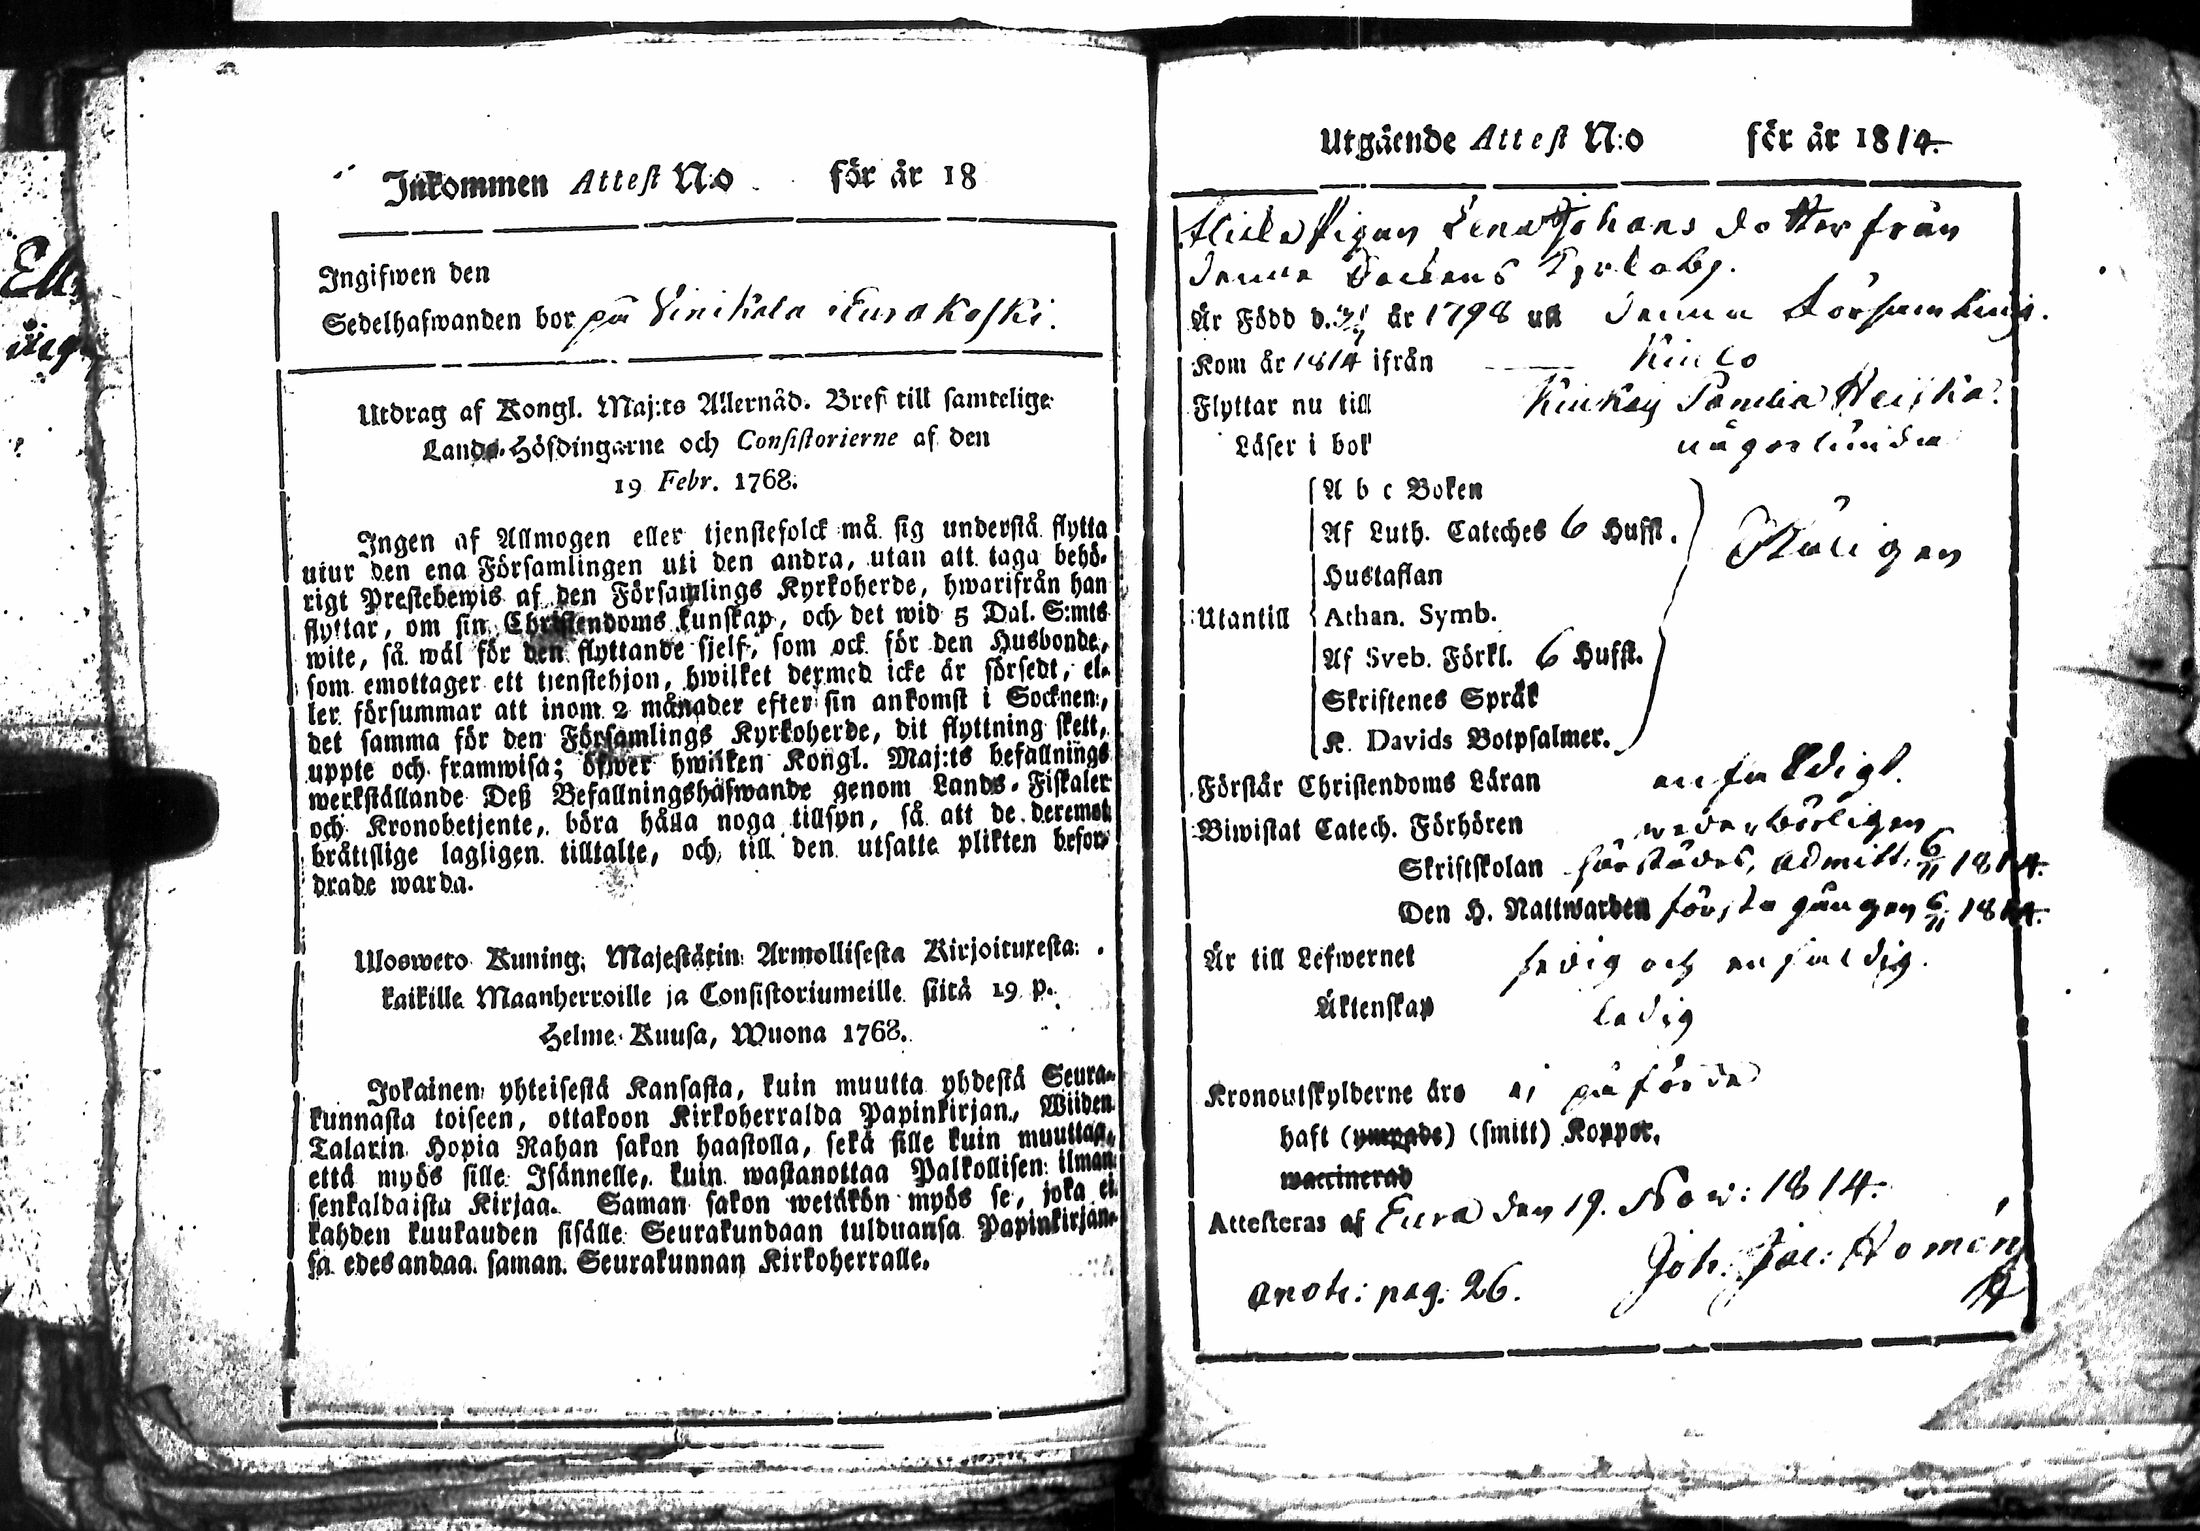 Inkommen Attest N:o för år 18
Ingifwen den
Sedelhafwanden bor på Vinikala i Eurakoski.
Utdrag af Kongl. Maj:ts Allernåd. Bref till samtelige
Lands-Höfdingarne och Consistorierne af den
19 Febr. 1768.
Ingen af Allmogen eller tjenstefolck må sig understå flytta
utur den ena Församlingen uti den andra, utan att taga behö-
rigt Prestebewis af den Församlings Kyrkoherde, hwarifrån han
flyttar, om sin Christendoms kunskap, och det wid 5 Dal. S:mts
wite, så wäl för den flyttande sjelf, som ock för den Husbonde,
som emottager ett tienstehjon, hwilket dermed icke är försedt, el-
ler försummar att inom 2 månader efter sin ankomst i Socknen,
det samma för den Församlings Kyrkoherde, dit flyttning skett,
uppte och framwisa; öfwer hwilken Kongl. Maj:ts befallnings
werkställande Deß Befallningshafwande genom Lands-Fiskaler
och Kronobetjente, böra hålla noga tillsyn, så att de deremot
bråttslige lagligen tilltalte, och till den utsatte plikten befor-
drade warda.
Uloswero Kuning. Majestätin Armollisesta Kirjoituxesta
kaikille Maanherroille ja Consistoriumeille siitä 19 p.
Helme-Kuusa, Wuona 1768.
Jokainen yhteisestä Kansasta, kuin muutta yhdestä Seura-
kunnasta toiseen, ottakoon Kirkoherralda Papinkirjan, Wiiden
Talarin Hopia Rahan sakon haastolla, sekä sille kuin muuttaa,
että myös sille Isännelle, kuin wastanottaa Palkollisen ilman
senkaldaista Kirjaa. Saman sakon wetäkön myös se, joka ei
kahden kuukauden sisälle Seurakundaan tulduansa Papinkirjan-
sa edesandaa saman Seurakunnan Kirkoherralle.
Utgående Attest N:o för år 1814.
Pigan Lena Johans dotter från
denna Sockens
Är Född d. år 1798 uti denna församling.
Kom år 1814 ifrån Kiulo
Flyttar nu till Heiska.
Läser i bok någorlunda
A b c Boken
Af Luth. Cateches 6 Hufst.
Hustaflan
Utantill Athan. Symb.
Af Sveb. Förkl. 6 Hufst.
Skriftenes Språk
K. Davids Botpsalmer.
Förstår Christendoms Läran enfaldigt.
Biwistat Catech. Förhören wederbörligen
Skriftskolan härstädes, admitt. 6/11 1814.
Den H. Nattwarden första gången 6/11 1814.
Är till Lefwernet fredig och enfaldig.
Äktenskap ledig
Kronoutskylderne äro ej påförde
haft (ympade) (smitt) Koppor.
waccinerad
Attesteras af Eura den 19. Nov: 1814.
Joh. Jac: Homén
Anoth: pag. 26.